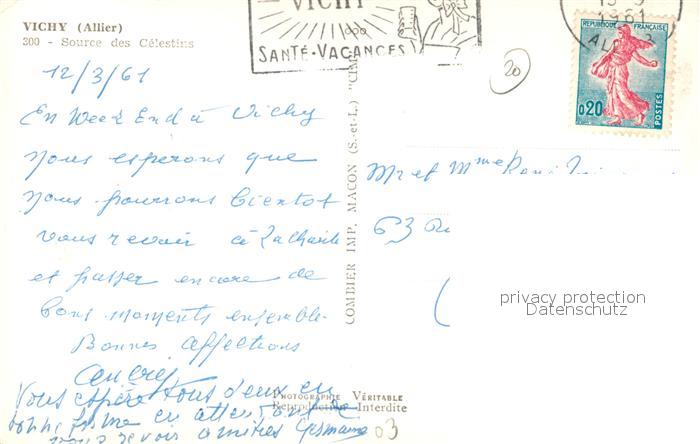 VICHY (Allier)
300 - Source des Célestins
VICHY
SANTÉ-VACANCES
1961
REPUBLIQUE FRANÇAISE
0,20
POSTES
20
12/3/61
En Week End à Vichy
nous esperons que
nous pourrons bientot
vous revoir à La Charité
et passer encore de
bons moments ensemble.
Bonnes affections
Vous espère tous deux en
bonne forme en attendant de
vous revoir amitiés Germaine
COMBIER IMP. MACON (S.-et-L.) "CIM"
Mr et Mme René
63
PHOTOGRAPHIE VÉRITABLE
Reproduction Interdite
03
privacy protection
Datenschutz